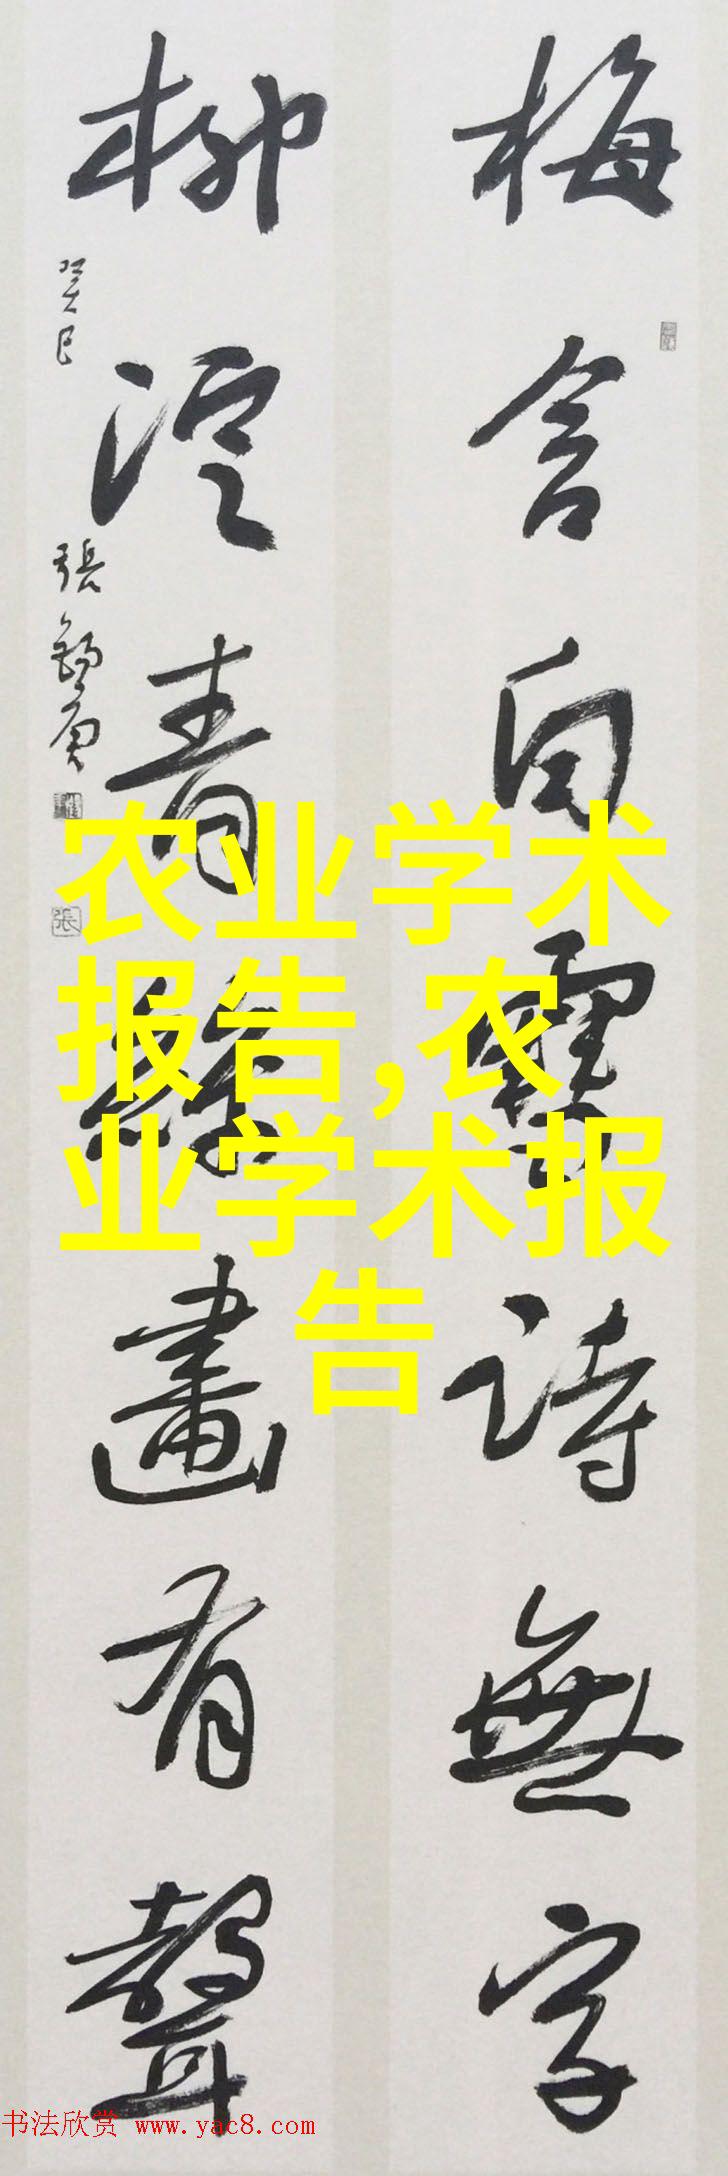 梅含白雪詩無字
柳浥青絲畫有聲
癸巳
張錫庚
張
农业学术
报告,农
业学术报
告
书法欣赏 www.yac8.com